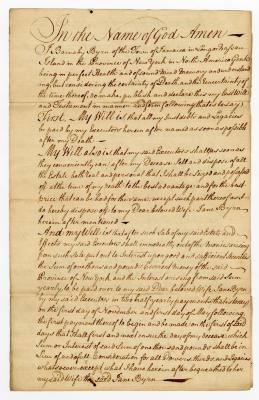 In the Name of God Amen
I Barnaby Byrn of the Town of Jamaica in Long or Nassau
Island in the Province of New York in North America Gentn
being in perfect Health and of sound Mind Memory and understand
ing, but considering the certainty of Death and the uncertainty of
the time thereof, do make, publish and declare this my last Will
and Testament in manner and form following that is to say)
First. My Will is that all my just debts and Legacies
be paid by my Executors herein after named as soon as possible
after my Death
My Will also is that my said Executors shall as soon as
they conveniently can, after my Decease, Sell and dispose of all
the Estate both real and personal that I shall be Seized and possessed
of at the time of my Death to the best advantage and for the best
price that can be had for the same; except such part thereof as I
do hereby dispose of to my Dear beloved Wife Jane Byrn
herein after mentioned
And my Will is that after such Sale of my said Estate and
Effects my said Executors shall immediately out of the Monies arising
from such Sale put out to Interest upon good and sufficient Securities
the Sum of one thousand pounds current money of the said
Province of New York and the Interest arising from said Sum
yearly, to be paid over to my said Dear beloved Wife Jane Byrn
by my said Executors in two half yearly payments that is to say
on the first day of November and first day of May following,
the first payment thereof to begin and be made on the first of said
days that shall first and next ensue the day of my decease; which
Sum or Interest of said Sum of one thousand pounds shall be in
lieu of and full Consideration for all Dowers, thirds and Legacies
whatsoever except what I have herein after bequeathed to her
my said Wife the said Jane Byrn